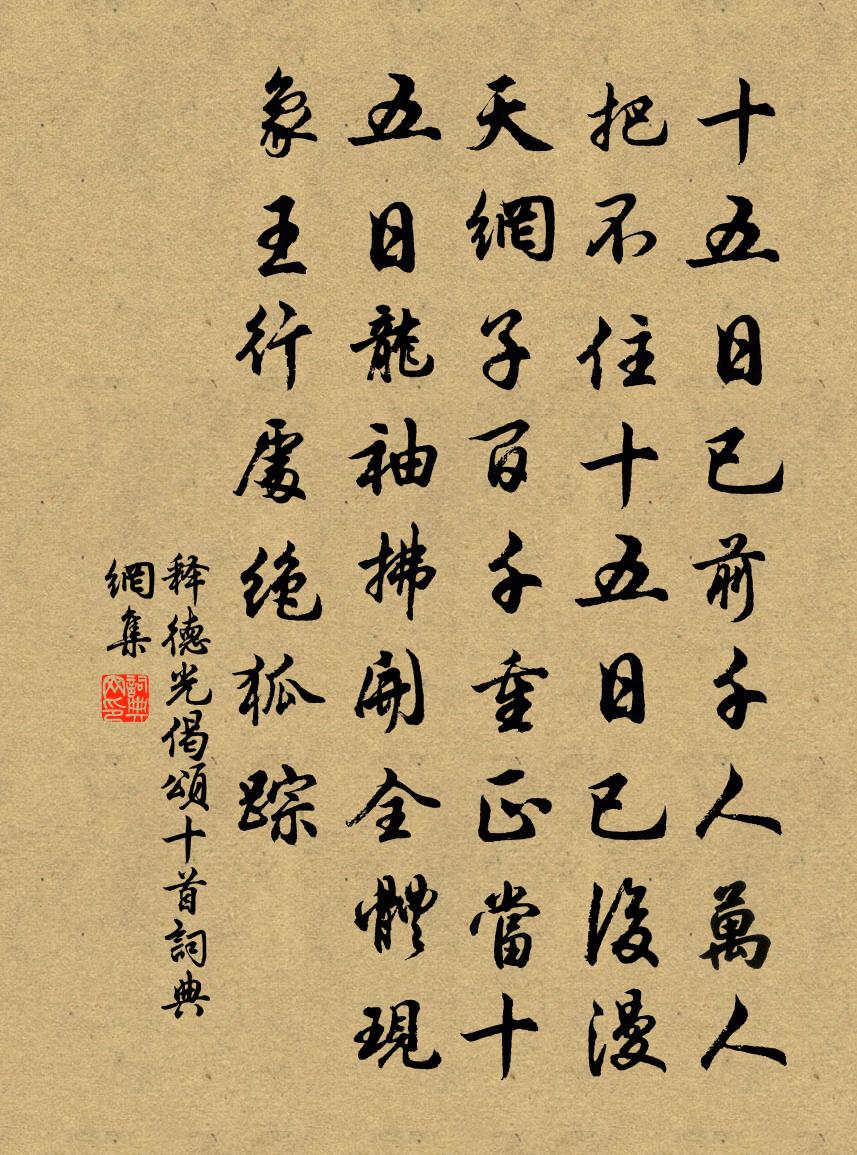 十五日已前千人萬人
把不住十五日已後漫
天網子百千重正當十
五日龍袖拂開全體現
象王行處絶狐踪
释德光偈頌十首詞典
網集